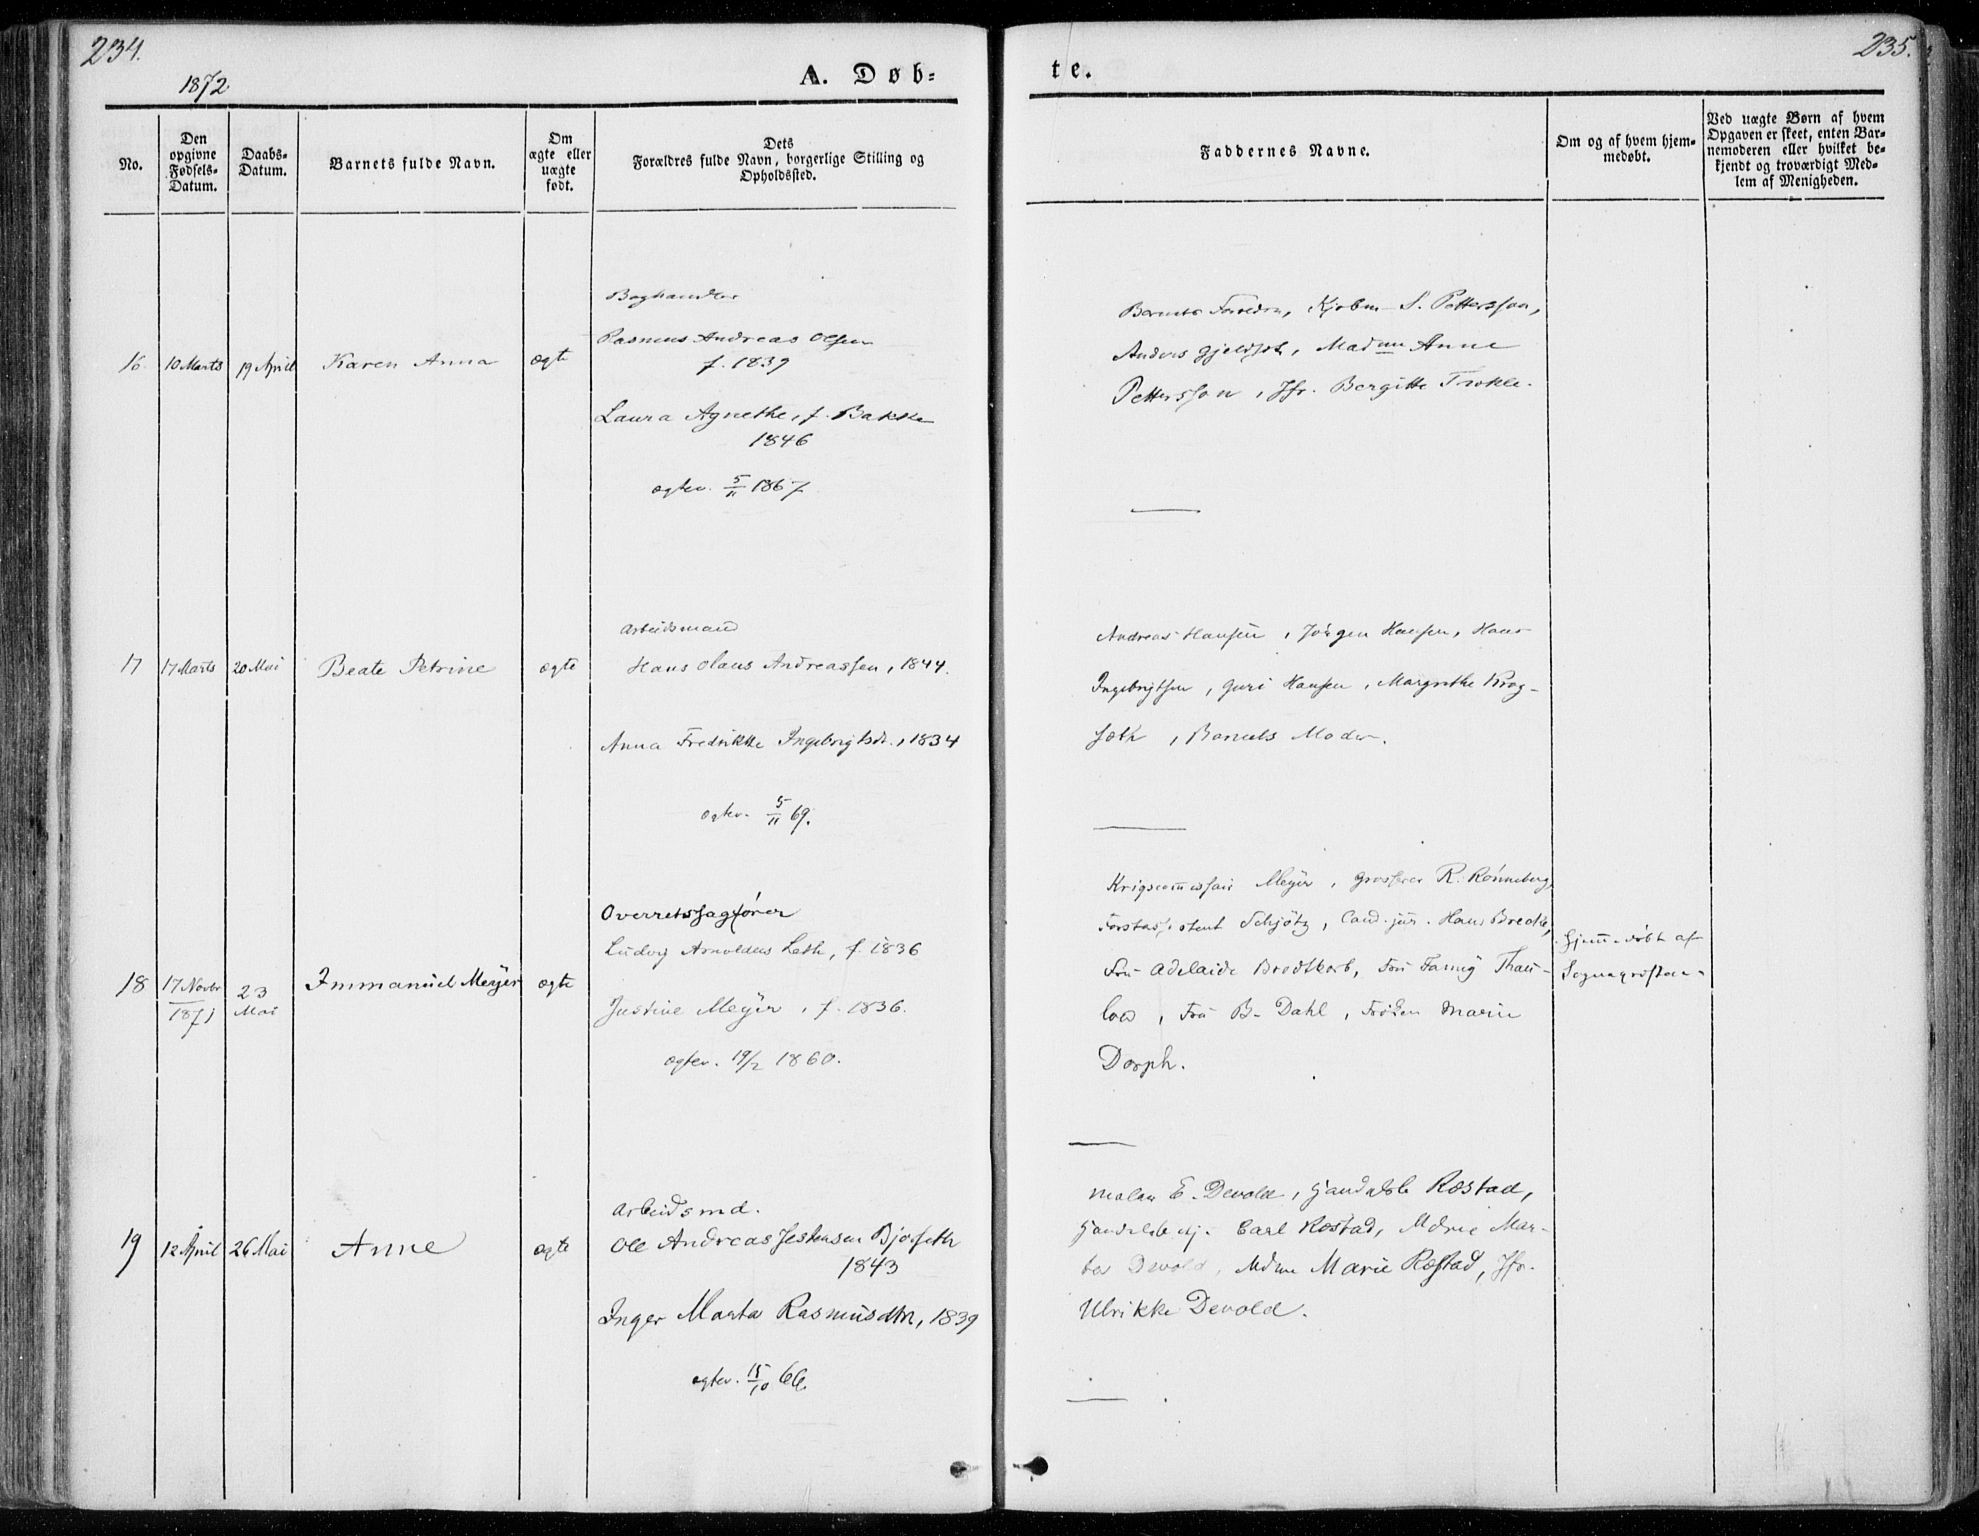 234.
1872
A. Døb=
te.
235.
No.
Den
opgivne
Fødsels-
Datum.
Daabs-
Datum.
Barnets fulde Navn.
Om
ægte eller
uægte
født.
Dets
Forældres fulde Navn, borgerlige Stilling og
Opholdssted.
Faddernes Navne.
Om og af hvem hjem-
medøbt.
Ved uægte Børn af hvem
Opgaven er skeet, enten Bar-
nemoderen eller hvilket be-
kjendt og troværdigt Med-
lem af Menigheden.
Boghandler
Rasmus Andreas Olsen
16. 10 Marts 19 April Karen Anna ægte f. 1839
Laura Agnethe, f. Bakke
1846
ægtev. 5/11 1867
Barnets Forældre, Kjøbm. S. Pettersson,
Anders Gjeldseth, Madme Anne
Pettersson, Jfr. Bergitte
Arbeidsmand
17 17 Marts 20 Mai Beate Petrine ægte Hans Olaus Andreassen, 1844.
Anna Fredrikke Ingebrigtsdr., 1834
ægtev. 5/11 69.
Andreas Hansen, Jörgen Hansen, Hans
Ingebrigtsen, Guri Hansen, Margrethe Krog-
sæth, Barnets Moder.
Overretssagfører
Ludvig Arnoldus Leth, f. 1836
18 17 Novbr 1871 23 Mai Immanuel Meyer ægte
Justine Meyer, f. 1836.
ægtev. 19/2 1860.
Krigscommissair Meyer, Grosserer R. Rønneberg,
Forstassistent Schjötz, Cand. jur. Hans
Fru Adelaide Brodtkorb, Fru Fanny Thau-
low, Fru B. Dahl, Frøken Marie
Dorph.
hjemmedøbt af
Sognepræsten
Arbeidsmd.
19 12 April 26 Mai Anne ægte Ole Andreas Jestensen Bjørseth
1843
Inger Marta Rasmusdtr, 1839
ægtev. 15/10 66.
Maler E. Devold, Handelsb. Røstad,
Handelsbetj. Carl Røstad, Mdme Mar-
ta Devold, Mdme Marie Røstad, Jfr.
Ulrikke Devold.